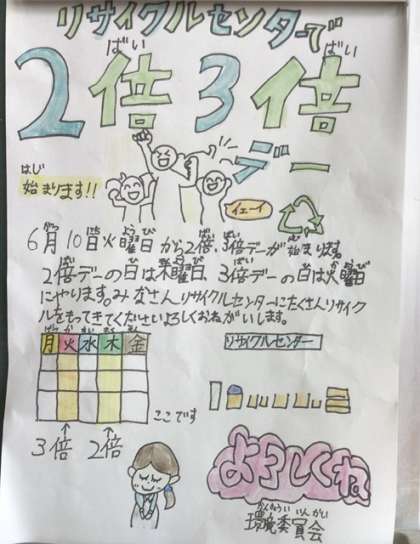 リサイクルセンターで
ばい ばい
2倍3倍
デー
はじ
始まります!!
イェーイ
がつ にち か よう び ばい ばい はじ
6月10日火曜日から2倍、3倍デーが始まります。
2倍デーの日は木曜日 3倍デーの日は火曜日
にやります。みなさんリサイクルセンターにたくさんリサイク
ルをもってきてくださいよろしくおねがいします。
月火水木金
リサイクルセンター
ここです
3倍 2倍
よろしくね
かんきょういいんかい
環境委員会